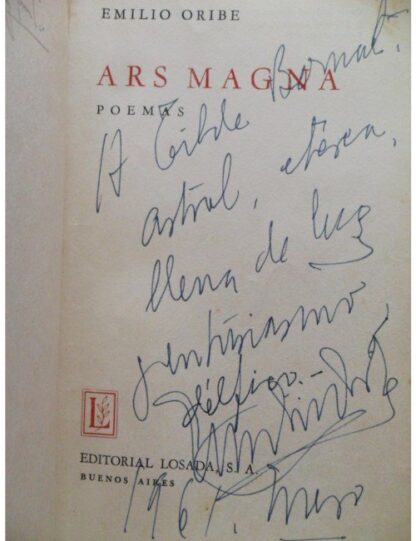 EMILIO ORIBE
ARS MAGNA
POEMAS
A Tilde Bernat,
astral, etérea,
llena de luz
y entusiasmo
délfico.—
L
EDITORIAL LOSADA, S. A.
BUENOS AIRES
1961,